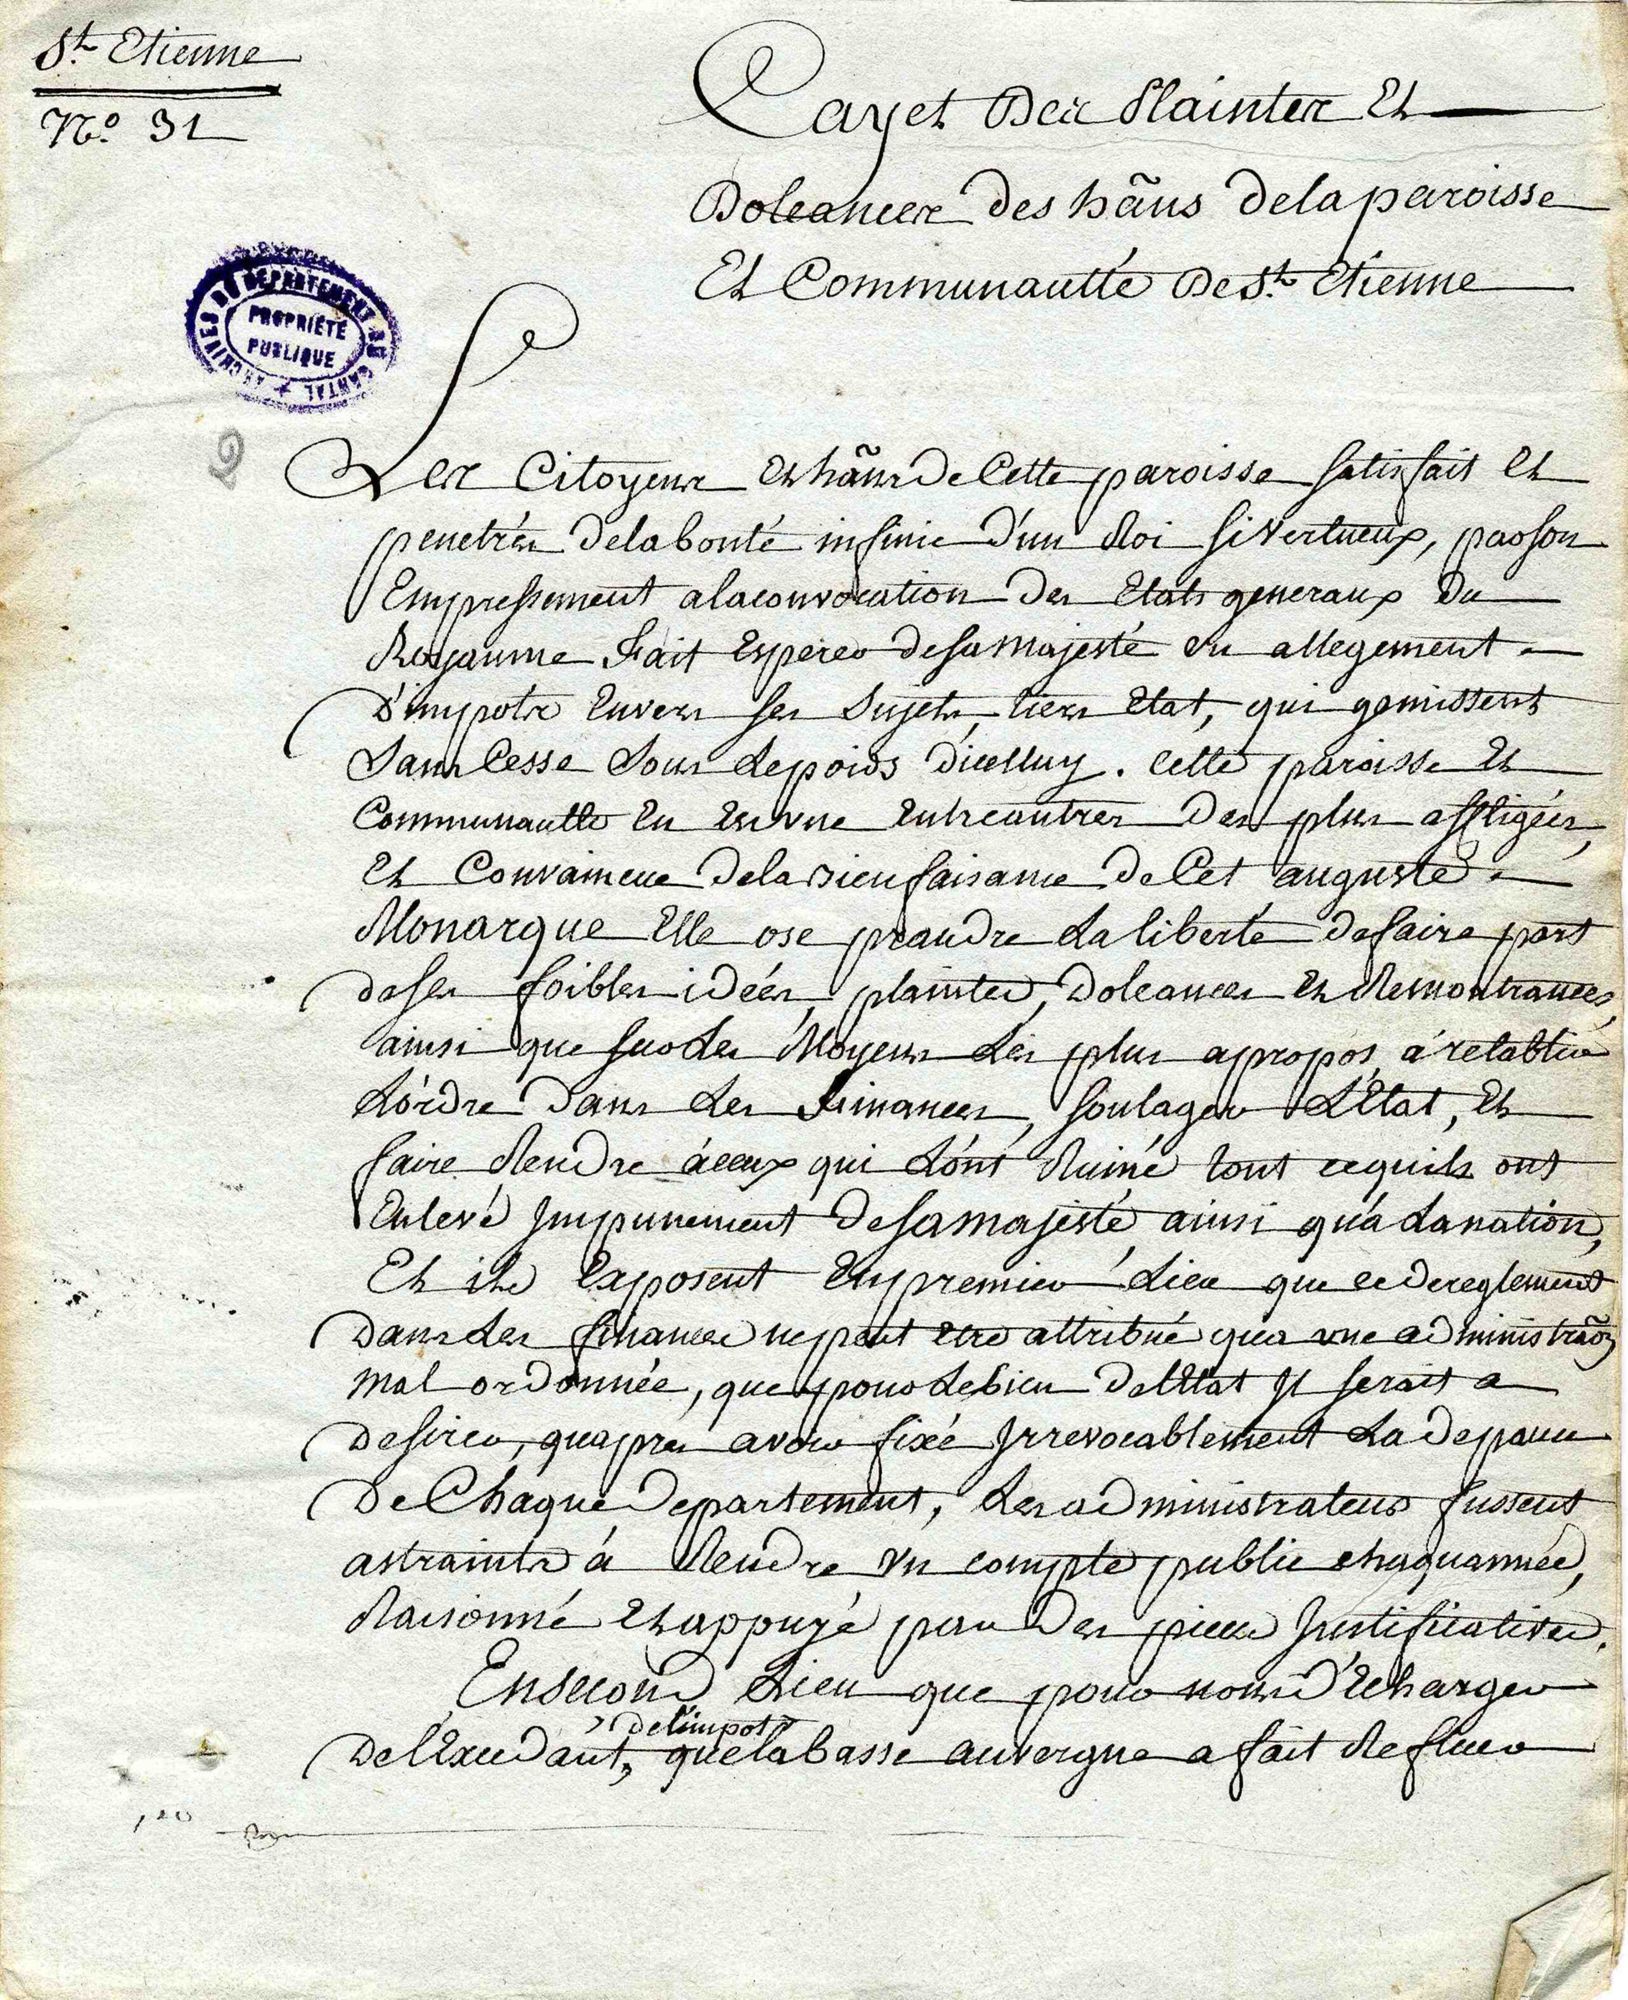 St. Etienne
N.º 31
Cayet Des Plaintes Et
Doleances des hãns de la paroisse
Et Communautté De St. Etienne
ARCHIVES DU DEPARTEMENT DU CANTAL
PROPRIÉTÉ
PUBLIQUE
2
Les Citoyens Et hãns de Cette paroisse satisfait Et
penetrés de la bonté infinie d'un Roi si vertueux, par son
Empressement a la convocation Des Etats generaux Du
Royaume Fait Esperer de sa majesté un allegement
D'impots Envers ses sujets, tiers Etat, qui gemissent
sans Cesse sous le poids d'icelluy. Cette paroisse Et
Communautté En Est une Entreautres Des plus affligées,
Et Convaincue de la Bienfaisance de Cet auguste
Monarque Elle ose prandre La liberté de faire part
de ses foibles idées, plaintes, Doleances Et Remontrances,
ainsi que sur Les Moyens Les plus apropos, á retablir
L'órdre Dans Les Finances, soulager L'Etat, Et
faire Rendre áceux qui L'ónt Ruiné tout cequils ont
Enlevé Impunement de sa majesté, ainsi qu'á La nation,
Et ils Exposent En premier Lieu que ce dereglement
Dans Les finances ne peut Etre attribué qu'a une administrãon
mal ordonnée, que pour Le bien de L'Etat Il serait a
desirer, qu'apres avoir fixé Irrevocablement La depance
De Chaque Departement, Les administrateurs fussent
astraints á Rendre un compte public chaquannée,
Raisonné Et appuyé par Des pieces Justificatives.
En second Lieu que pour nous d'Echarger
de l'impot
De l'Excedant, que la basse auvergne a fait Refluer